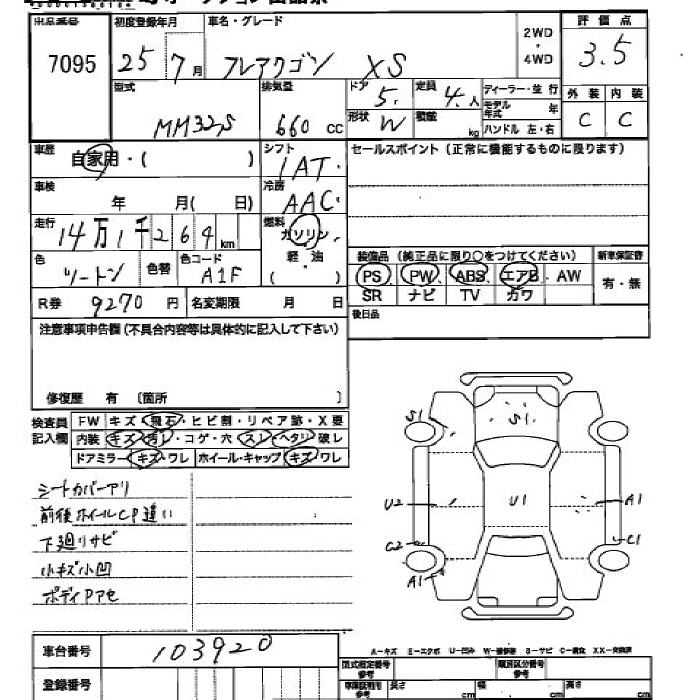 出品番号 初度登録年月 車名・グレード 2WD・4WD 評価点
7095 25年7月 フレアワゴン XS 3.5
型式 排気量 ドア 5. 定員 4.人 ディーラー・並行 外装 内装
MM32S 660 CC 形状 W 積載 kg モデル年式 年 C C
ハンドル 左・右
車歴 自家用・( ) シフト 1AT. セールスポイント (正常に機能するものに限ります)
車検 年 月( 日) 冷房 AAC.
走行 14万1千264km 燃料 ガソリン
軽・油
( )
装備品 (純正品に限り○をつけてください) 新車保証書
色 ツートン 色替 色コード A1F PS、PW、ABS、エアB、AW 有・無
R券 9270円 名変期限 月 日 SR ナビ TV カワ
後日品
注意事項申告欄(不具合内容等は具体的に記入して下さい)
修復歴 有 〔箇所 〕
検査員記入欄 FW キズ・飛石・ヒビ割・リペア跡・X要
内装 キズ・汚レ・コゲ・穴・スレ・ヘタリ・破レ
ドアミラー キズ・ワレ ホイール・キャップ キズ・ワレ
シートカバーアリ
前後ホイールCP違い
下廻リサビ
小キズ小凹
ボディPアセ
S1 S1
U2 U1 A1
C2 C1
A1
車台番号 103920
A-キズ E-エクボ U-凹み W-補修跡 S-サビ C-腐食 XX-交換済
登録番号
型式指定番号 参考 類別区分番号 参考
長さ cm 幅 cm 高さ cm